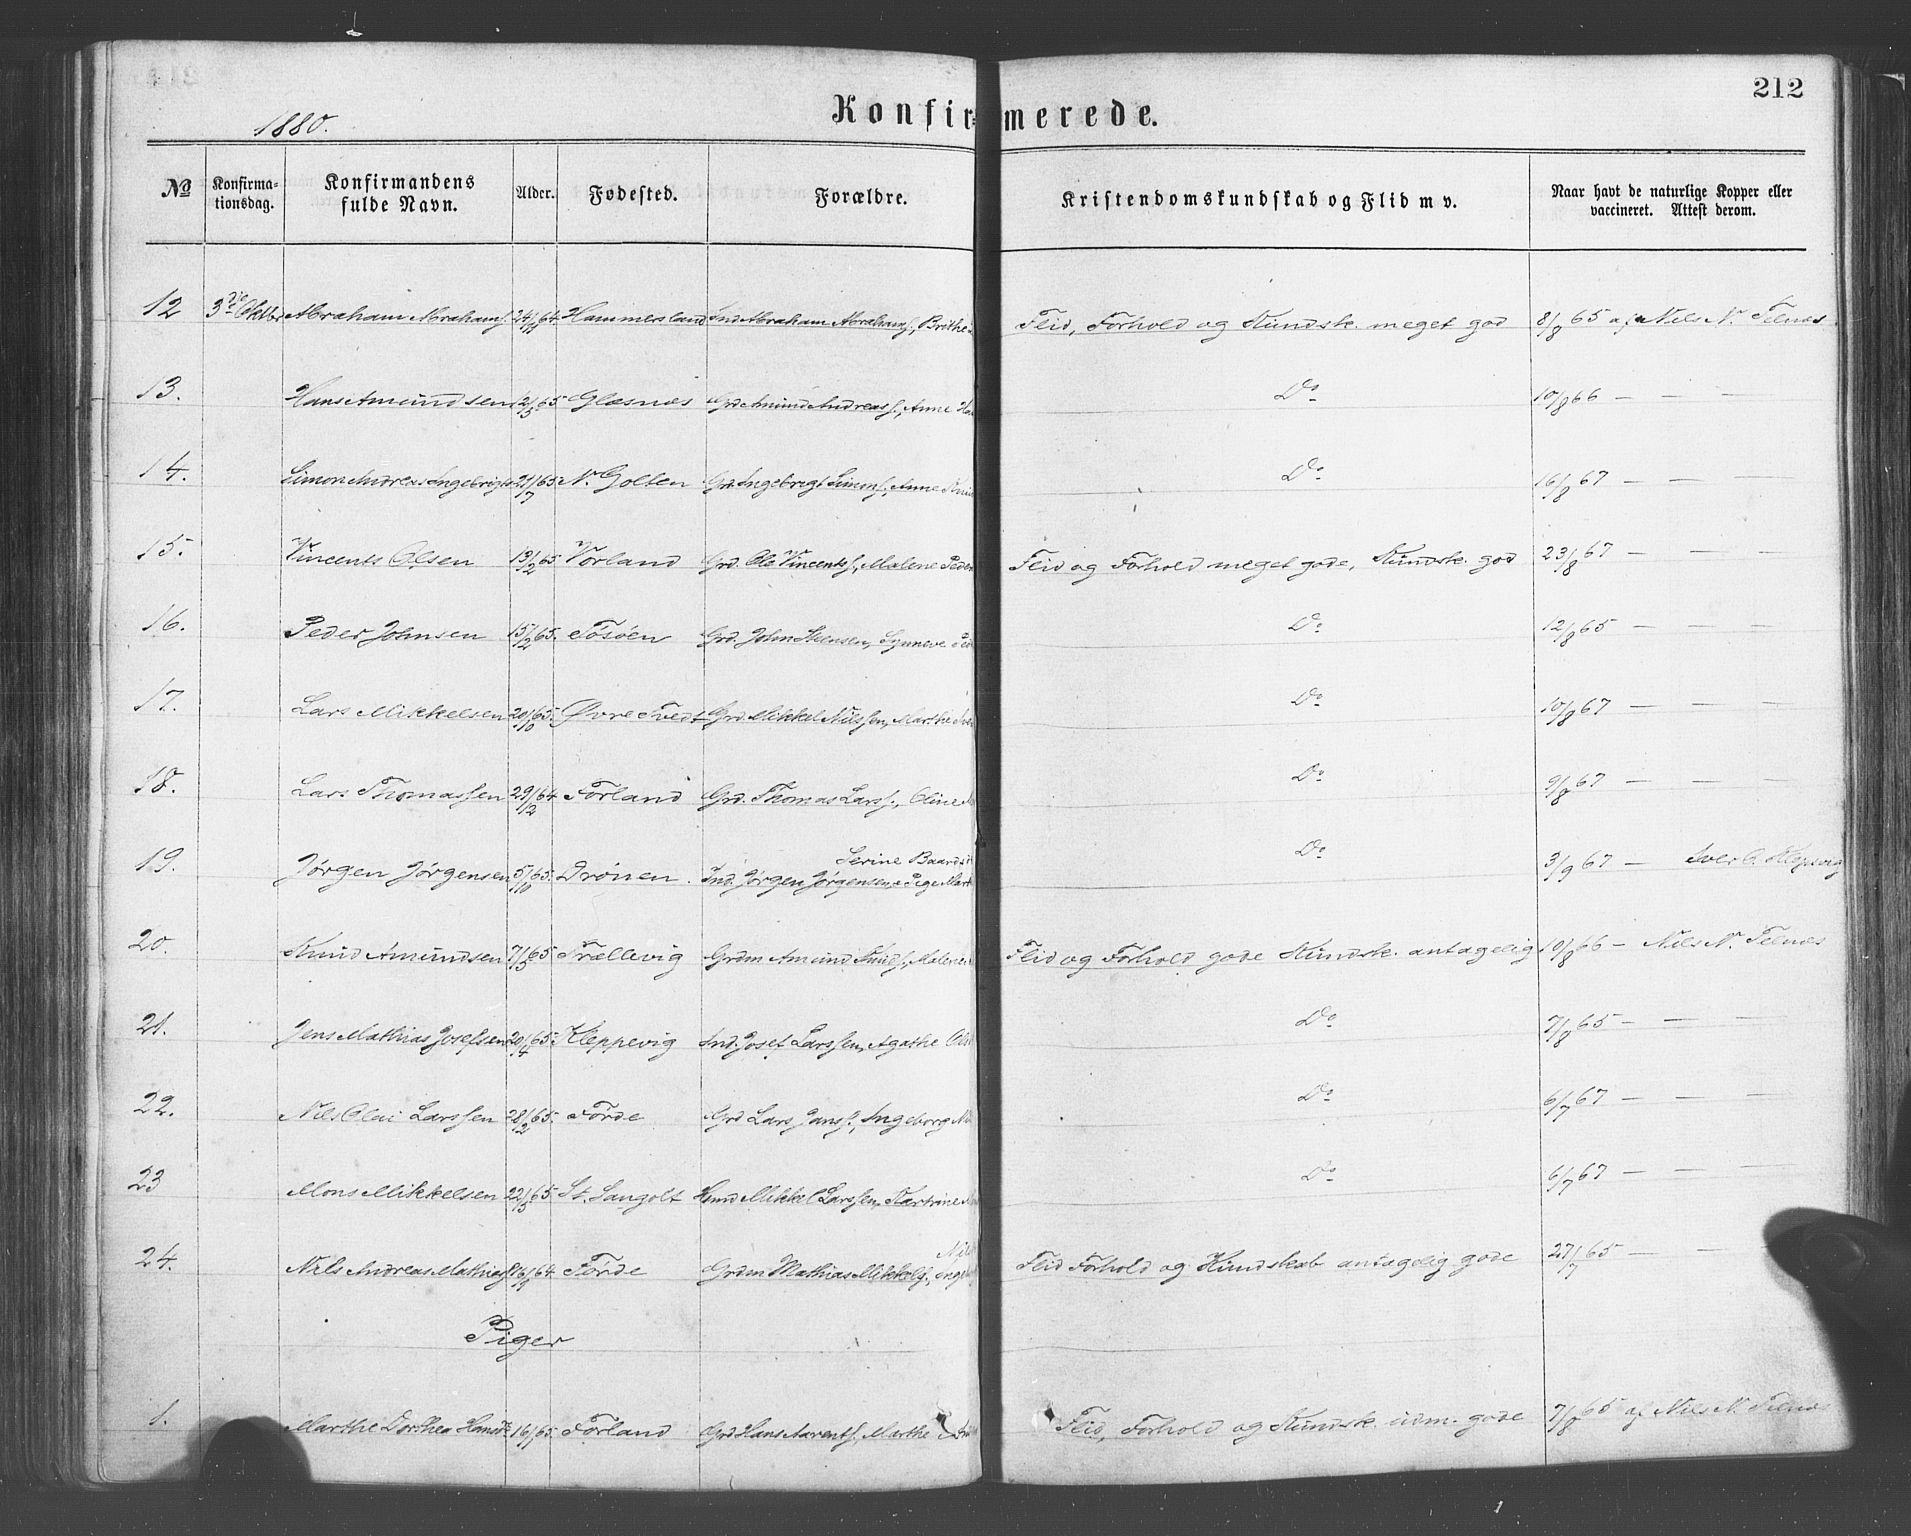 212
1880.
Konfirmerede.
No Konfirma-tionsdag. Konfirmandens fulde Navn. Alder. Fødested. Forældre. Kristendomskundskab og Flid m v. Naar havt de naturlige Kopper eller vaccineret. Attest derom.
12 3die Oktbr Abraham Abrahams. 24/64 Hammersland Ind Abraham Abrahams., Brithe Flid, Forhold og Kundsk. meget god 8/8 65 af Nils N. Telnæs
13. Hans Amundsen 12/5 65 Glæsnæs Grd Amund Andreass., Anne Do 10/8 66 — — —
14. Simon Andreas Ingebrigts 21/7 65 N. Golten Grd Ingebrigt Simons., Anne Do 16/8 67 — — —
15. Vincents Olsen 13/2 65 Vorland Grd. Ole Vincents., Malene Peder Flid og Forhold meget gode, Kundsk. god 23/8 67 — — —
16. Peder Johnsen 15/2 65. Tøsøen Grd. John Steensen, Synneve Ped Do 12/8 65 — — —
17. Lars Mikkelsen 20/10 65. Øvre Tvedt Grd. Mikkel Nilssen, Marthe Do 10/8 67 — — —
18. Lars Thomassen 29/12 64 Førland Grd. Thomas Larss., Oline Do 9/8 67 — — —
19. Jørgen Jørgensen 5/10 65. Drönen. Ind. Jørgen Jørgensen, Pige Serine Baards Do 3/9 67 — Iver O. Klepsvig
20. Knud Amundsen 7/5 65 Trællevig Grdm Amund Knuds., Malene Flid og Forhold gode Kundsk. antagelig 10/8 66 — Nils N. Telnæs
21. Jens Mathias Josefsen 20/4 65. Kleppevig Ind. Josef Larssen, Agathe Ols Do 7/8 65 — — —
22. Nils Olai Larssen 28/2 65. Førde Grd Lars Jans., Ingeborg Do 6/7 67 — — —
23 Mons Mikkelsen 22/5 65 St. Sangolt Huusmd Mikkel Larssen, Do 6/7 67 — — —
24. Nils Andreas Mathias 64. Førde Grdm Mathias Mikkels., Flid Forhold og Kundskab antagelig gode 27/7 65 — — —
Piger
1. Marthe Dorthea Hansdt. 65. Førland Grd Hans Aarents., Marthe Flid, Forhold og Kundsk. udm. gode 7/8 65 af Nils N. Telnæs